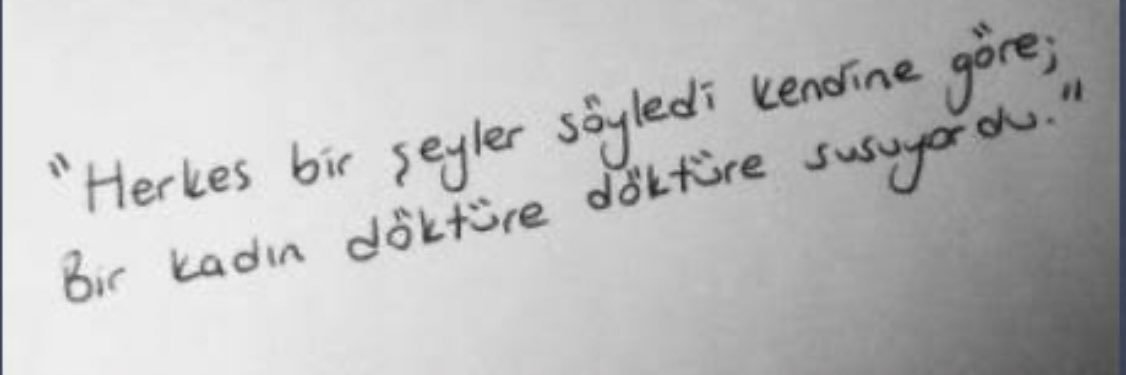 "Herkes bir şeyler söyledi kendine göre;
Bir kadın döktüre döktüre susuyordu."